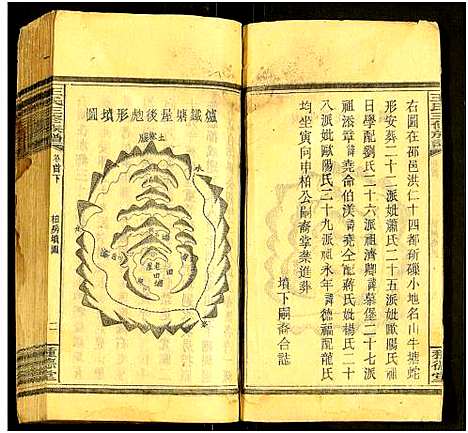 右圖在邵邑洪仁十四都新礫小地名山牛塘蛇
形安葬二十二派妣蕭氏二十五派妣歐陽氏祖
日學配劉氏二十六派祖濟卿諱慕堡二十七派
祖添章諱堯命伯渼諱堯仝配蔣氏妣楊氏二十
八派妣歐陽氏二十九派祖永年諱德仁配龍氏
均坐寅向申柏公嗣裔掌業進葬
墳下嗣裔合誌
種德堂
爐鐵塘星後虵形墳圖
卷首下
柏房墳圖
種德堂